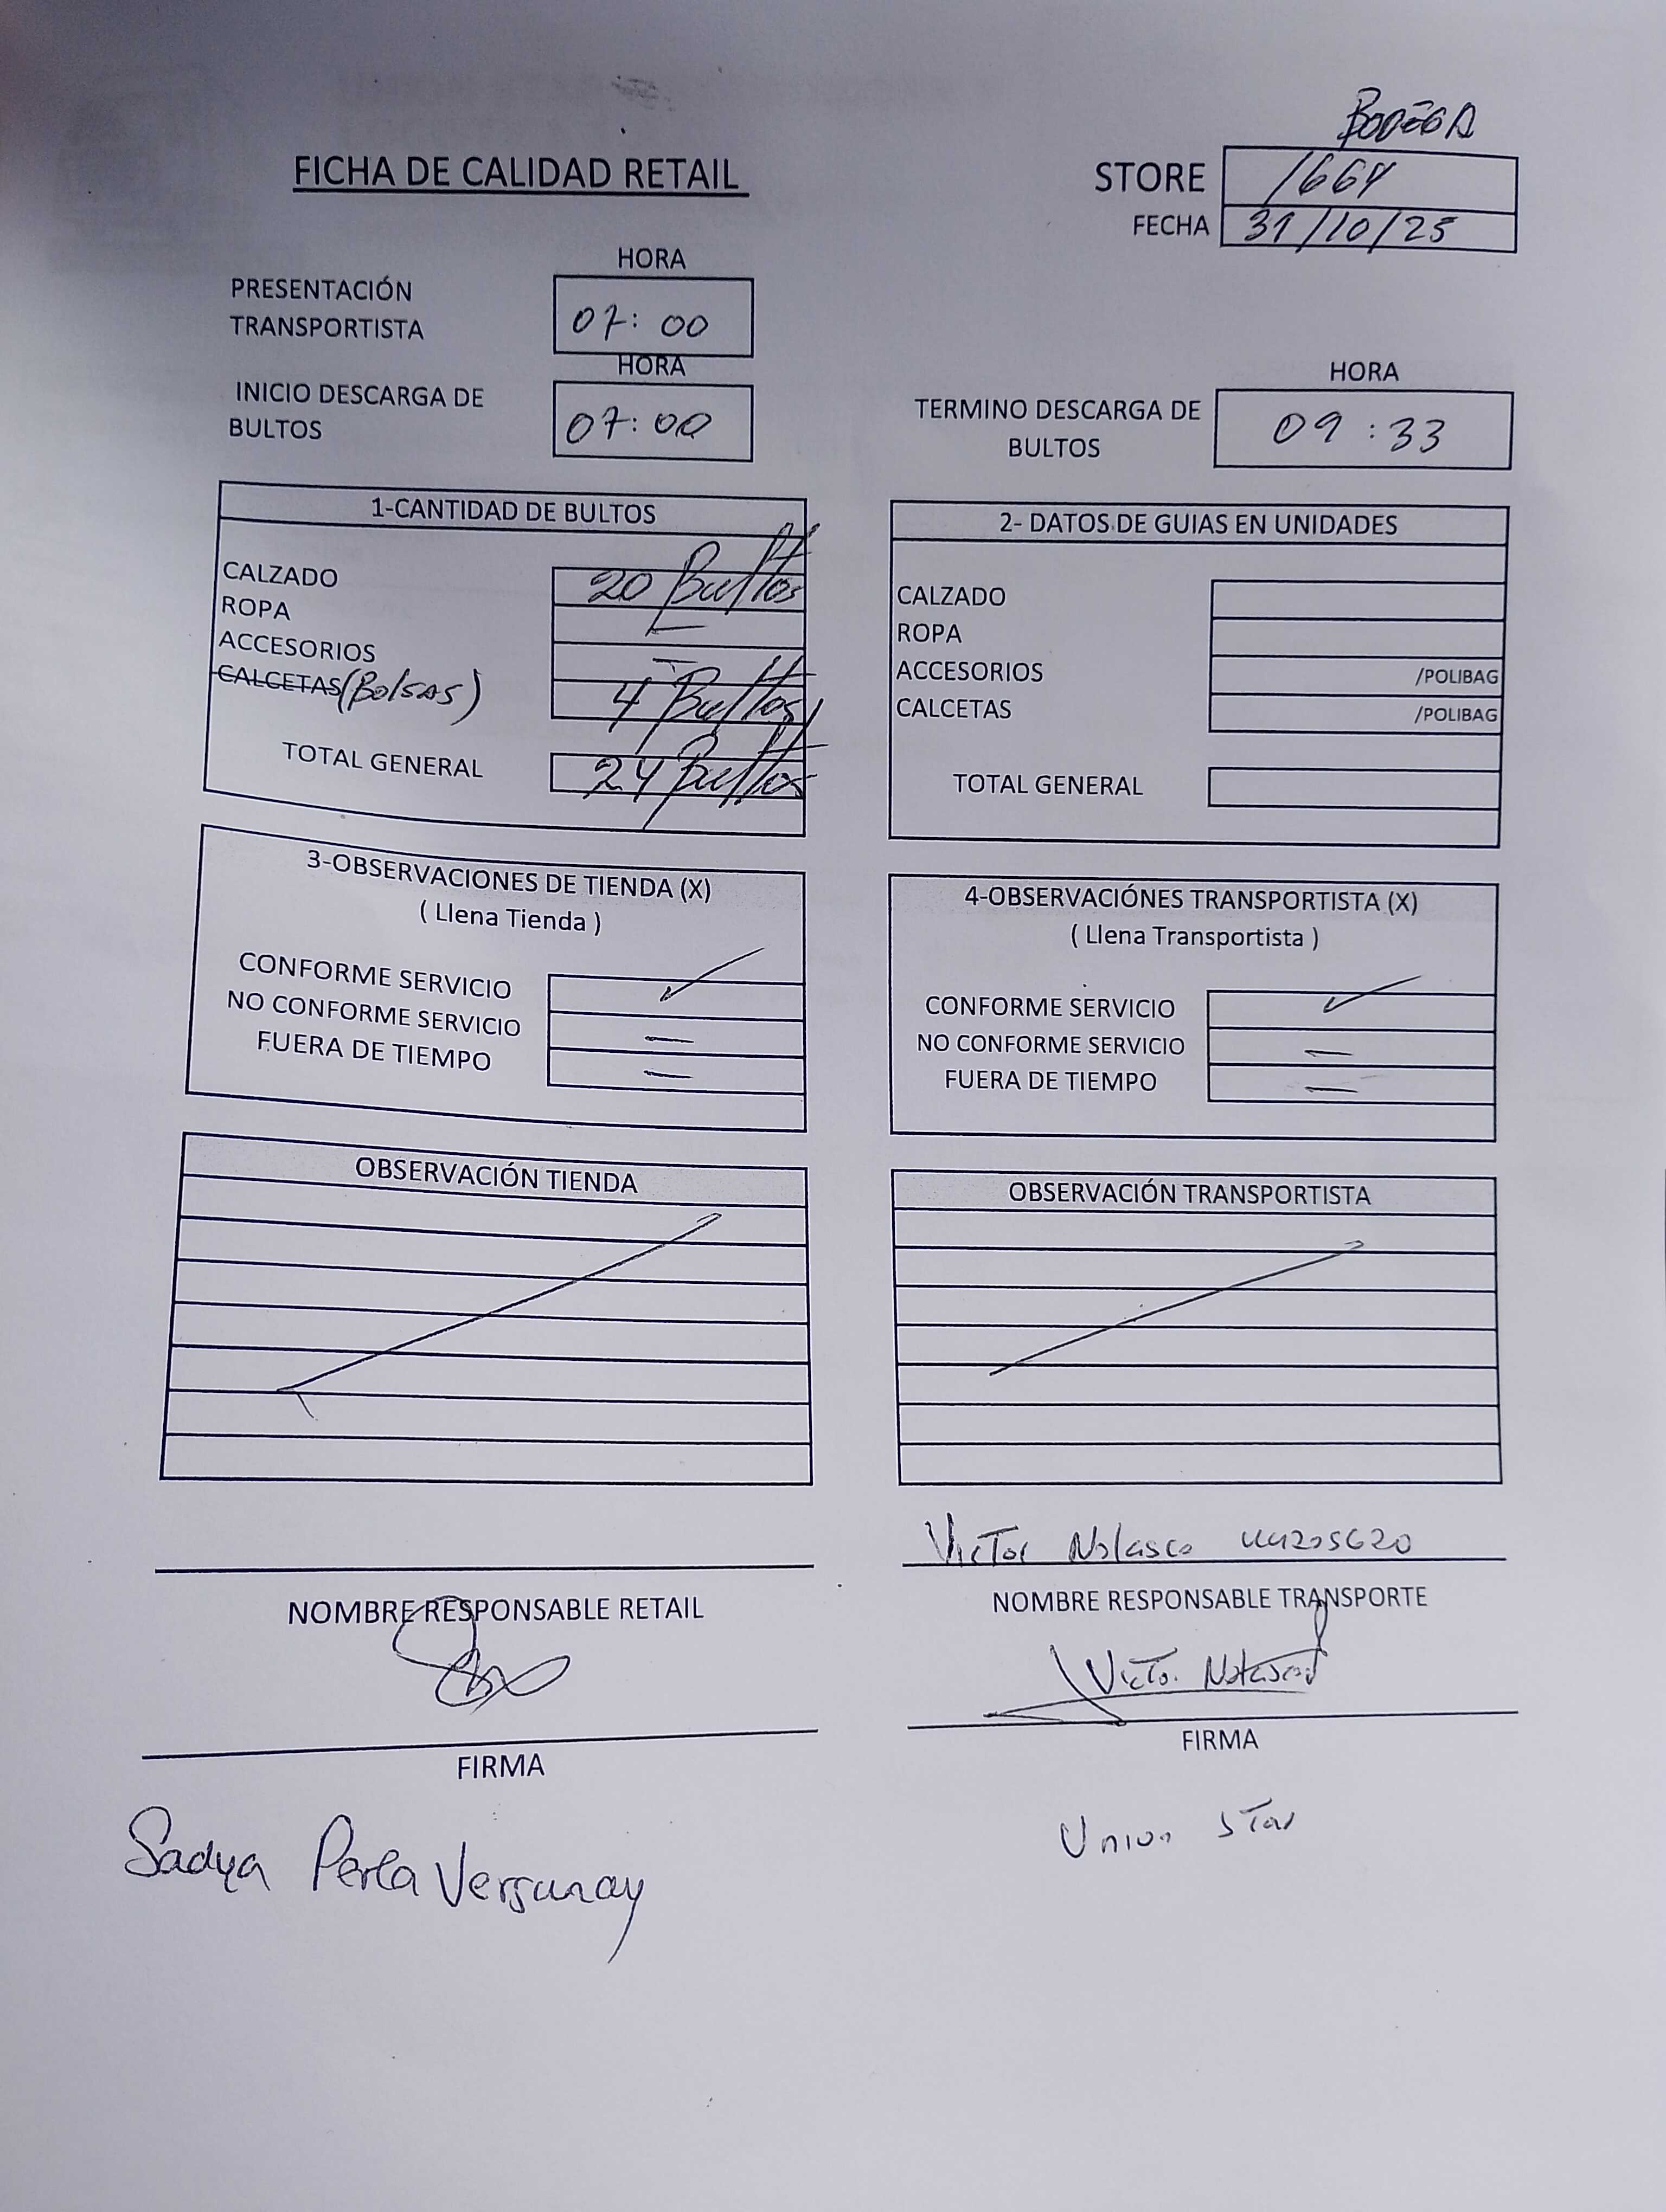 BODEGA
FICHA DE CALIDAD RETAIL
STORE 1664
FECHA 31/10/25
HORA
PRESENTACIÓN
TRANSPORTISTA
07:00
HORA
INICIO DESCARGA DE
BULTOS
07:00
HORA
TERMINO DESCARGA DE
BULTOS
09:33
1-CANTIDAD DE BULTOS
CALZADO 20 Bultos
ROPA
ACCESORIOS
CALCETAS (Bolsas) 4 Bultos
TOTAL GENERAL 24 Bultos
2- DATOS DE GUIAS EN UNIDADES
CALZADO
ROPA
ACCESORIOS /POLIBAG
CALCETAS /POLIBAG
TOTAL GENERAL
3-OBSERVACIONES DE TIENDA (X)
( Llena Tienda )
CONFORME SERVICIO ✓
NO CONFORME SERVICIO —
FUERA DE TIEMPO —
4-OBSERVACIÓNES TRANSPORTISTA (X)
( Llena Transportista )
CONFORME SERVICIO ✓
NO CONFORME SERVICIO —
FUERA DE TIEMPO —
OBSERVACIÓN TIENDA
OBSERVACIÓN TRANSPORTISTA
NOMBRE RESPONSABLE RETAIL
FIRMA
Sadya Perla
Victor Nolasco 44205620
NOMBRE RESPONSABLE TRANSPORTE
Victor Nolasco
FIRMA
Union Star